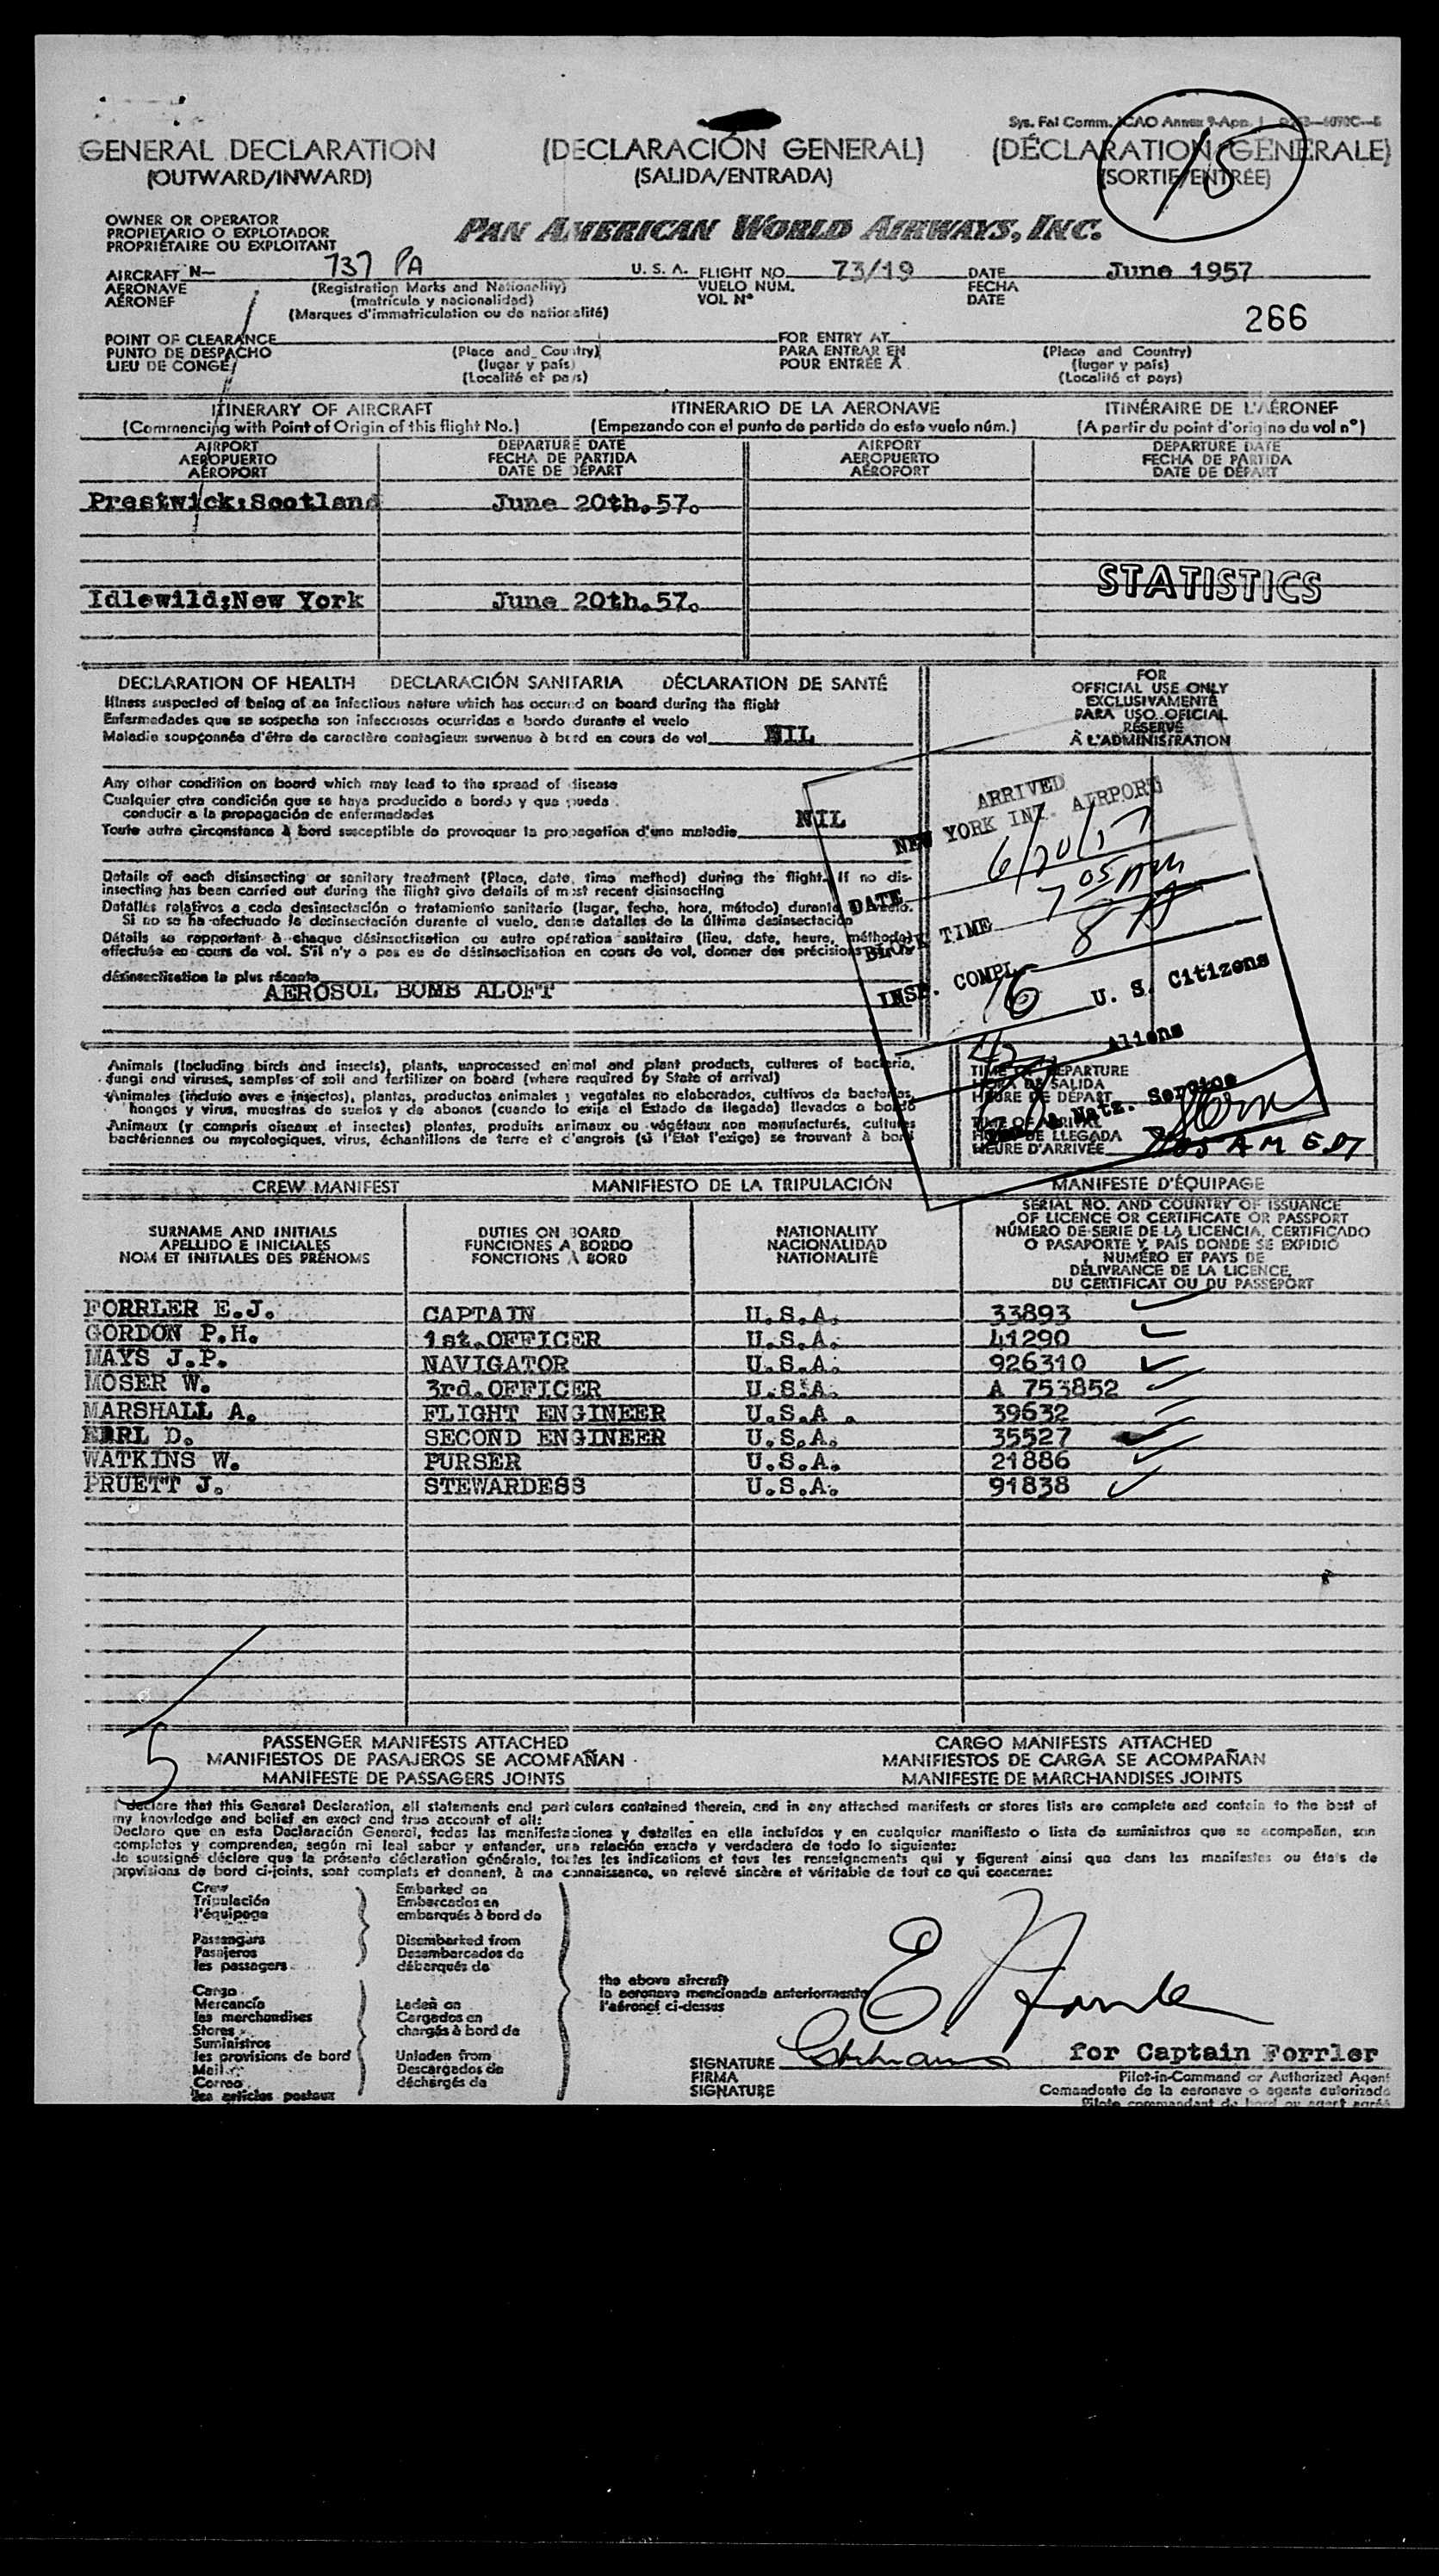 Sys. Fal Comm. ICAO Annex 9-App. 1
15
GENERAL DECLARATION (DECLARACIÓN GENERAL) (DÉCLARATION GÉNÉRALE)
(OUTWARD/INWARD) (SALIDA/ENTRADA) (SORTIE/ENTRÉE)
OWNER OR OPERATOR
PROPIETARIO O EXPLOTADOR
PROPRIÉTAIRE OU EXPLOITANT
PAN AMERICAN WORLD AIRWAYS, INC.
AIRCRAFT N— 737 PA U. S. A. FLIGHT NO. 73/19 DATE June 1957
AERONAVE (Registration Marks and Nationality) VUELO NÚM. FECHA
AÉRONEF (matrícula y nacionalidad) VOL Nº DATE
(Marques d'immatriculation ou de nationalité)
266
POINT OF CLEARANCE FOR ENTRY AT
PUNTO DE DESPACHO (Place and Country) PARA ENTRAR EN (Place and Country)
LIEU DE CONGÉ (lugar y país) POUR ENTRÉE À (lugar y país)
(Localité et pays) (Localité et pays)
ITINERARY OF AIRCRAFT ITINERARIO DE LA AERONAVE ITINÉRAIRE DE L'AÉRONEF
(Commencing with Point of Origin of this flight No.) (Empezando con el punto de partida do este vuelo núm.) (A partir du point d'origine du vol nº)
AIRPORT DEPARTURE DATE AIRPORT DEPARTURE DATE
AEROPUERTO FECHA DE PARTIDA AEROPUERTO FECHA DE PARTIDA
AÉROPORT DATE DE DÉPART AÉROPORT DATE DE DÉPART
Prestwick:Scotland June 20th.57.
STATISTICS
Idlewild;New York June 20th.57.
DECLARATION OF HEALTH DECLARACIÓN SANITARIA DÉCLARATION DE SANTÉ
Illness suspected of being of an infectious nature which has occured on board during the flight
Enfermedades que se sospecha son infecciosas ocurridas a bordo durante el vuelo
Maladie soupçonnée d'être de caractère contagieux survenue à bord en cours de vol NIL
FOR
OFFICIAL USE ONLY
EXCLUSIVAMENTE
PARA USO OFICIAL
RÉSERVÉ
À L'ADMINISTRATION
Any other condition on board which may lead to the spread of disease
Cualquier otra condición que se haya producido a bordo y que pueda
conducir a la propagación de enfermedades
Toute autre circonstance à bord susceptible de provoquer la propagation d'une maladie NIL
Details of each disinsecting or sanitary treatment (Place, date, time method) during the flight. If no dis-
insecting has been carried out during the flight give details of most recent disinsecting
Detalles relativos a cada desinsectación o tratamiento sanitario (lugar, fecha, hora, método) durante vuelo.
Si no se ha efectuado la desinsectación durante el vuelo, dense detalles de la última desinsectación
Détails se rapportant à chaque désinsectisation ou autre opération sanitaire (lieu, date, heure, méthode)
effectuée en cours de vol. S'il n'y a pas eu de désinsectisation en cours de vol, donner des précisions
désinsectisation la plus récente
AEROSOL BOMB ALOFT
ARRIVED
NEW YORK INT. AIRPORT
DATE 6/20/57
BLOCK TIME 7 05 AM
INSP. COMPL. 8 A
16 U. S. Citizens
Aliens
Natz. Service
Animals (including birds and insects), plants, unprocessed animal and plant products, cultures of bacteria,
fungi and viruses, samples of soil and fertilizer on board (where required by State of arrival)
Animales (incluso aves e insectos), plantas, productos animales y vegetales no elaborados, cultivos de bacterias,
hongos y virus, muestras de suelos y de abonos (cuando lo exija el Estado de llegada) llevados a bordo
Animaux (y compris oiseaux et insectes) plantes, produits animaux ou végétaux non manufacturés, cultures
bactériennes ou mycologiques, virus, échantillons de terre et d'engrais (si l'Etat l'exige) se trouvant à bord
TIME OF DEPARTURE
HORA DE SALIDA
HEURE DE DÉPART
TIME OF ARRIVAL
HORA DE LLEGADA
HEURE D'ARRIVÉE 705 AM EDT
CREW MANIFEST MANIFIESTO DE LA TRIPULACIÓN MANIFESTE D'ÉQUIPAGE
SURNAME AND INITIALS DUTIES ON BOARD NATIONALITY SERIAL NO. AND COUNTRY OF ISSUANCE
APELLIDO E INICIALES FUNCIONES A BORDO NACIONALIDAD OF LICENCE OR CERTIFICATE OR PASSPORT
NOM ET INITIALES DES PRÉNOMS FONCTIONS À BORD NATIONALITÉ NÚMERO DE SERIE DE LA LICENCIA, CERTIFICADO
O PASAPORTE Y PAÍS DONDE SE EXPIDIÓ
NUMÉRO ET PAYS DE
DÉLIVRANCE DE LA LICENCE,
DU CERTIFICAT OU DU PASSEPORT
FORRLER E.J. CAPTAIN U.S.A. 33893
GORDON P.H. 1st.OFFICER U.S.A. 41290
MAYS J.P. NAVIGATOR U.S.A. 926310
MOSER W. 3rd.OFFICER U.S.A. A 753852
MARSHALL A. FLIGHT ENGINEER U.S.A. 39632
EARL D. SECOND ENGINEER U.S.A. 35527
WATKINS W. PURSER U.S.A. 21886
PRUETT J. STEWARDESS U.S.A. 91838
5
PASSENGER MANIFESTS ATTACHED CARGO MANIFESTS ATTACHED
MANIFIESTOS DE PASAJEROS SE ACOMPAÑAN MANIFIESTOS DE CARGA SE ACOMPAÑAN
MANIFESTE DE PASSAGERS JOINTS MANIFESTE DE MARCHANDISES JOINTS
I declare that this General Declaration, all statements and particulars contained therein, and in any attached manifests or stores lists are complete and contain to the best of
my knowledge and belief an exact and true account of all:
Declaro que en esta Declaración General, todas las manifestaciones y detalles en ella incluídos y en cualquier manifiesto o lista de suministros que se acompañan, son
completos y comprenden, según mi leal saber y entender, una relación exacta y verdadera de todo lo siguiente:
Je soussigné déclare que la présente déclaration générale, toutes les indications et tous les renseignements qui y figurent ainsi que dans les manifestes ou états de
provisions de bord ci-joints, sont complets et donnent, à ma connaissance, un relevé sincère et véritable de tout ce qui concerne:
Crew Embarked on
Tripulación Embarcados en
l'équipage embarqués à bord de
Passengers Disembarked from
Pasajeros Desembarcados de
les passagers débarqués de
the above aircraft
la aeronave mencionada anteriormente
l'aéronef ci-dessus
Cargo
Mercancía Laden on
les marchandises Cargados en
Stores chargés à bord de
Suministros
les provisions de bord Unladen from
Mail Descargados de
Correo déchargés de
les articles postaux
E Forrler
SIGNATURE for Captain Forrler
FIRMA Pilot-in-Command or Authorized Agent
SIGNATURE Comandante de la aeronave o agente autorizado
Pilote commandant de bord ou agent agréé